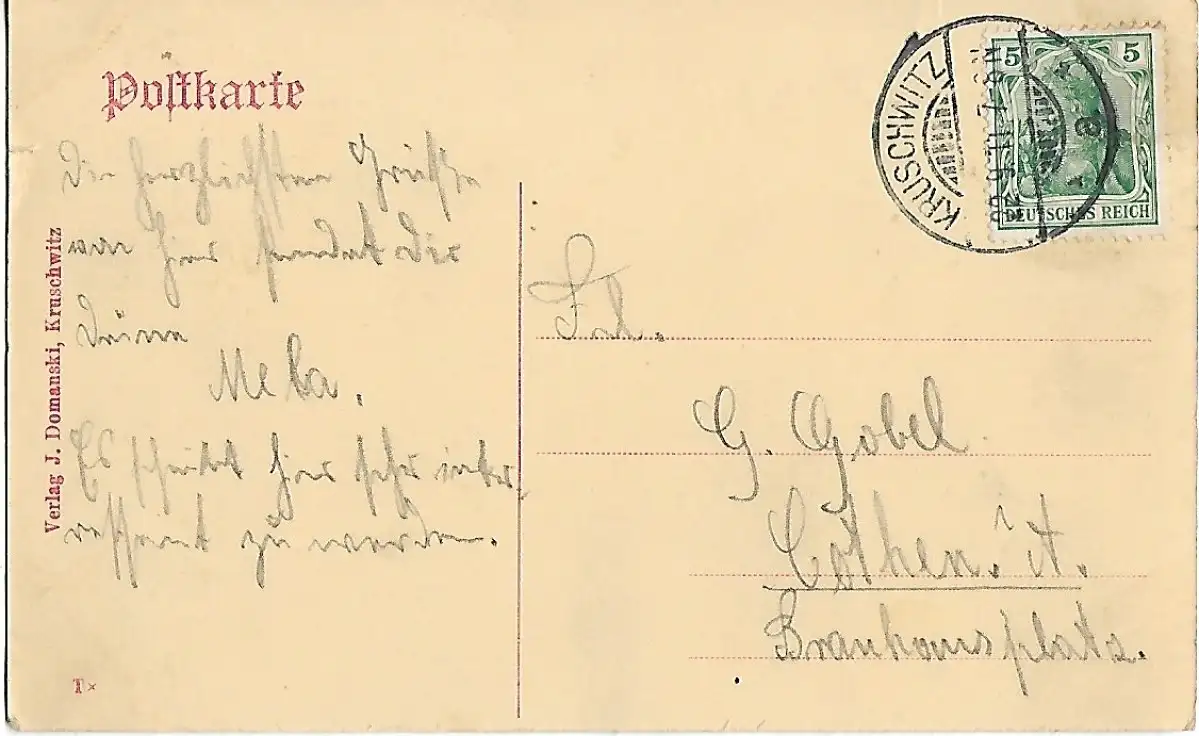 Postkarte
Die herzlichsten Grüße
von hier sendet Dir
Deine
Meta.
Es scheint hier sehr inter
ressant zu werden.
Verlag J. Domanski, Kruschwitz
T×
KRUSCHWITZ
7-8N
a
5 5
DEUTSCHES REICH
Frl.
G. Gobel
Cöthen. i. A.
Brauhausplatz.